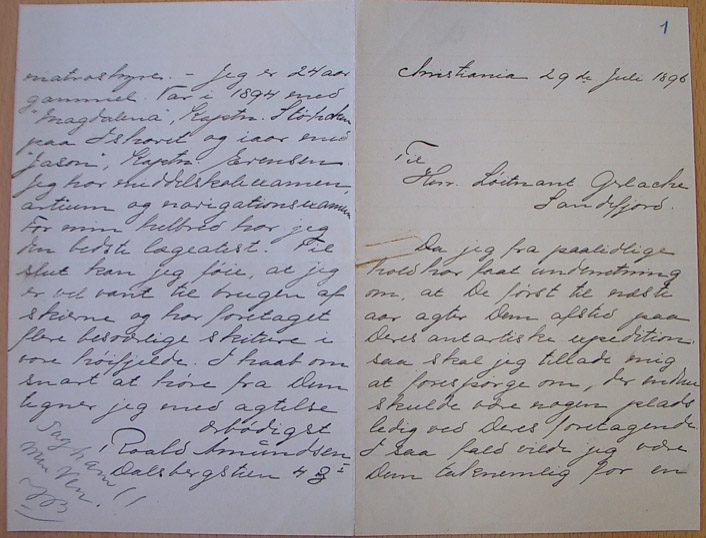 1
Christiania 29de Juli 1896
Til
Herr. Löitnant Gerlache
Sandefjord.
Da jeg fra paalidlige
hold har faat underretning
om, at De först til næste
aar agter Dem afsted paa
Deres antartiske expedition
saa skal jeg tillade mig
at forespörge om, der endnu
skulde være nogen plads
ledig ved Deres foretagende.
I saa fald vilde jeg være
Dem taknemlig for en
matroshyre. – Jeg er 24 aar
gammel. Var i 1894 med
"Magdalena", Kaptn.
paa Ishavet og iaar med
"Jason", Kaptn. Evensen.
Jeg har middelskoleexamen,
artium og navigationsexamen
For min helbred har jeg
den bedste lægeatest. Til
slut kan jeg föie, at jeg
er vel vant til brugen af
skierne og har foretaget
flere besværlige skiture i
vore höifjelde. I haab om
snart at höre fra Dem
tegner jeg med agtelse
ærbödigst
Roald Amundsen
Dalsbergstien 4
min Ven!!